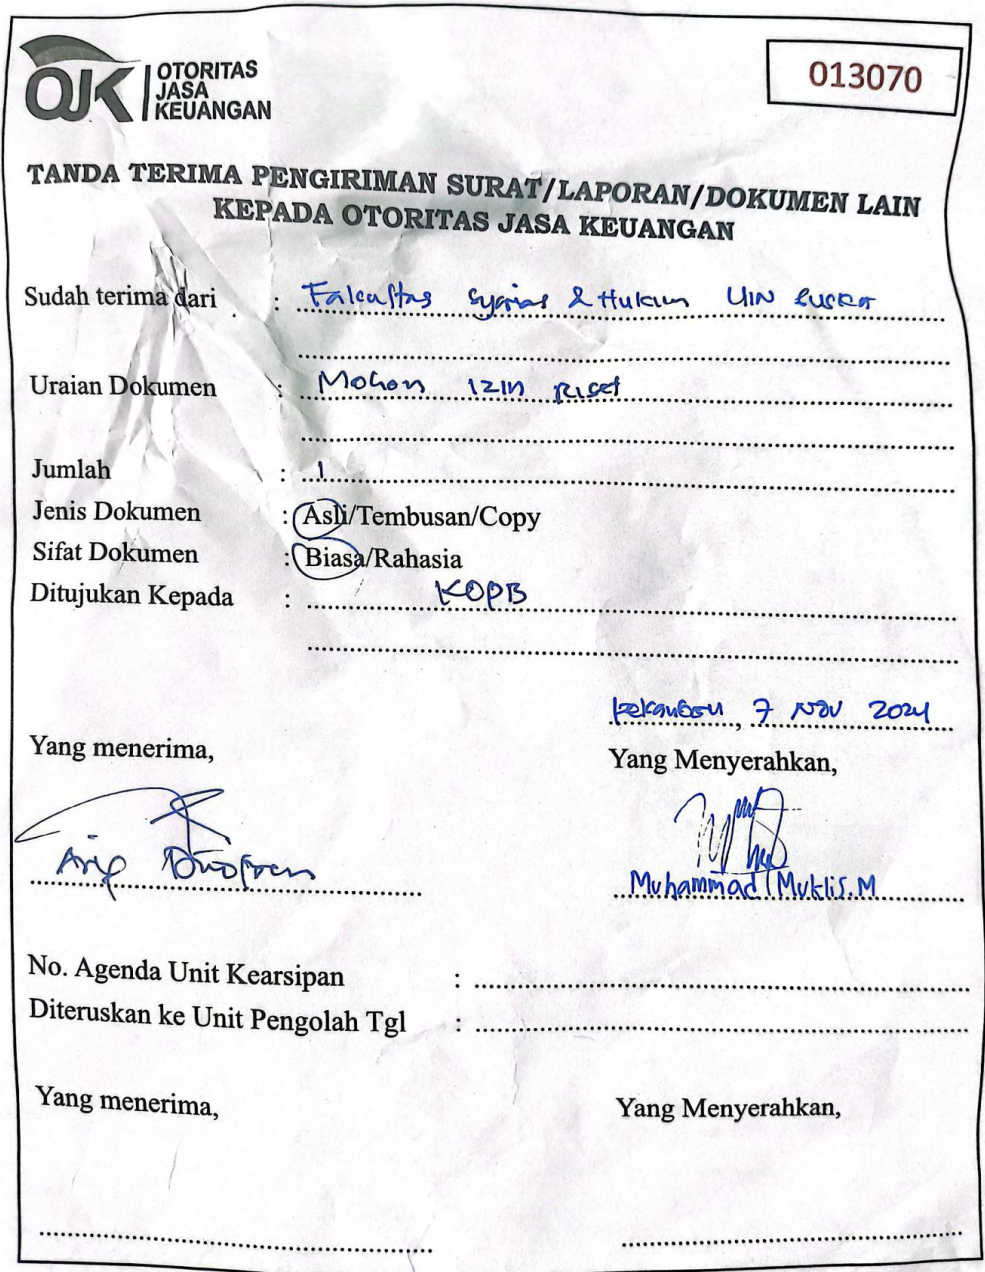 OJK OTORITAS
JASA
KEUANGAN
013070
TANDA TERIMA PENGIRIMAN SURAT/LAPORAN/DOKUMEN LAIN
KEPADA OTORITAS JASA KEUANGAN
Sudah terima dari : Fakultas Syariah & Hukum UIN Suska
Uraian Dokumen : Mohon izin riset
Jumlah : 1
Jenis Dokumen : Asli/Tembusan/Copy
Sifat Dokumen : Biasa/Rahasia
Ditujukan Kepada : KOPB
Pekanbaru, 7 Nov 2024
Yang menerima,
Yang Menyerahkan,
Arip
Muhammad Muklis.M
No. Agenda Unit Kearsipan :
Diteruskan ke Unit Pengolah Tgl :
Yang menerima,
Yang Menyerahkan,